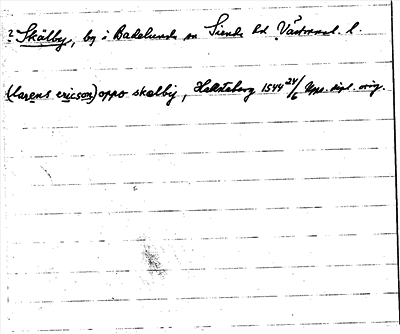 ? Skälby, by i Badelunda sn Siende hd Västmanl. l.
(larens ericson) oppo skælby, 1544 24/6 Upps. dipl. orig.